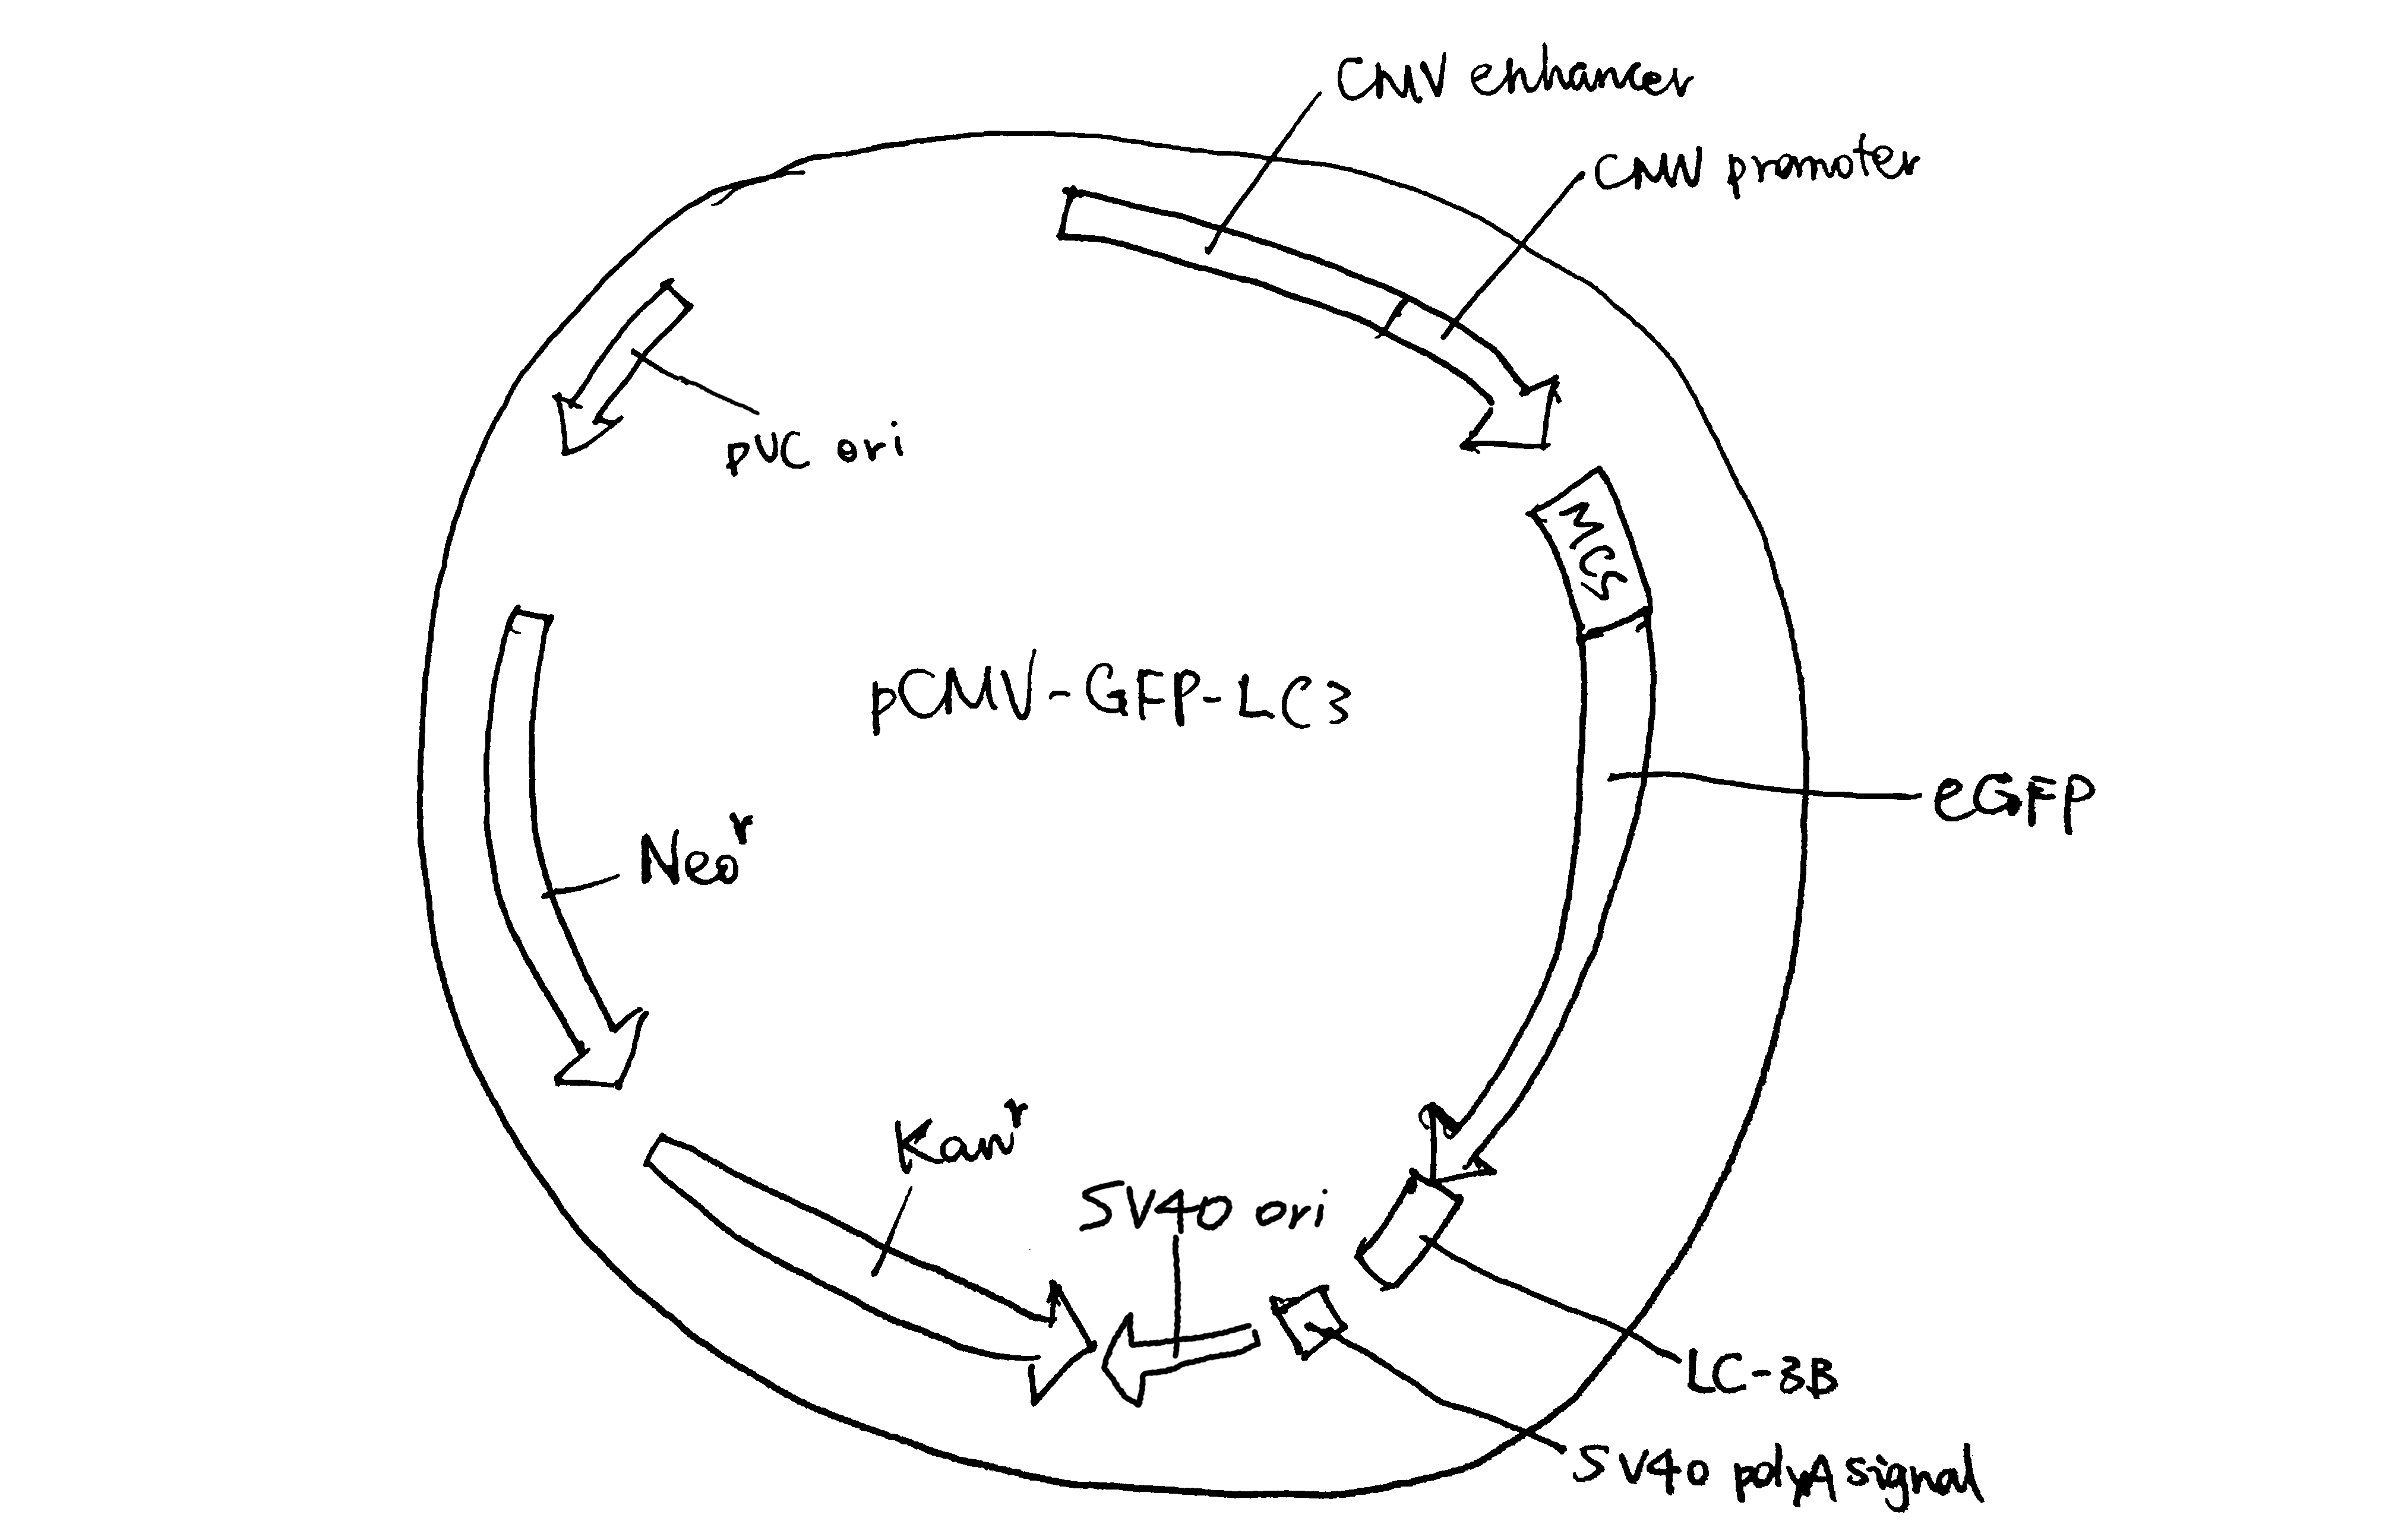 CMV enhancer
CMV promoter
pUC ori
MCS
pCMV-GFP-LC3
eGFP
Neo^r
Kan^r
SV40 ori
LC-3B
SV40 polyA signal